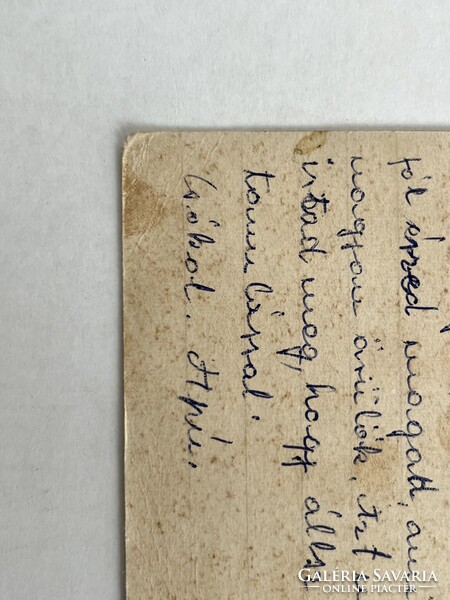 jól érzed magad, 
nagyon örülök, Azt
irtad meg, hogy állsz
tanulással.
Csókol. Apu.
GALÉRIA SAVARIA
ONLINE PIACTÉR